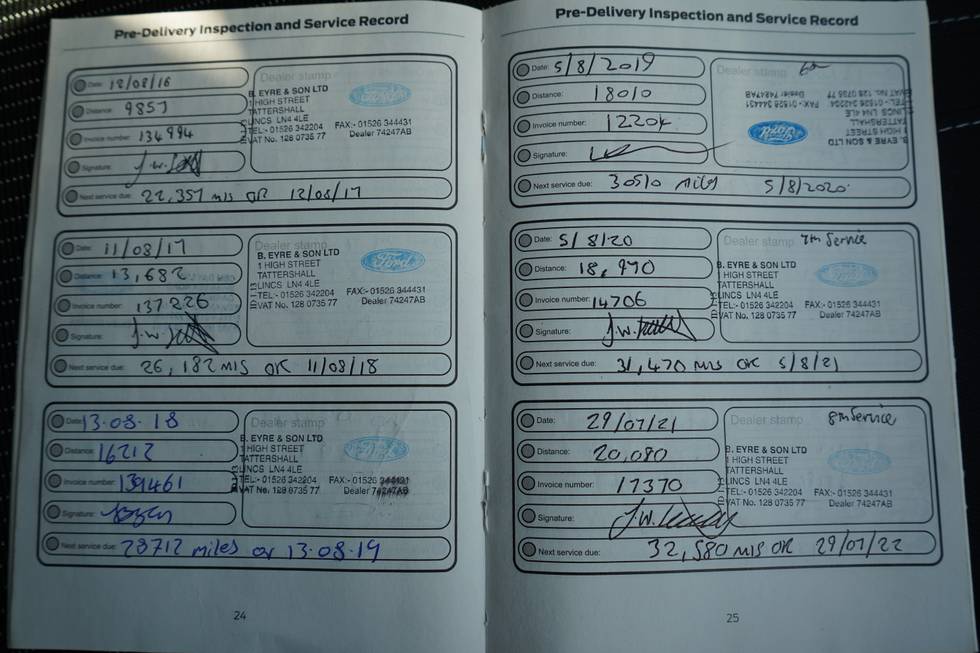 Pre-Delivery Inspection and Service Record
Date: 12/08/16
Distance: 9857
Invoice number: 134994
Signature:
Next service due: 22,357 mls OR 12/08/17
Dealer stamp
B. EYRE & SON LTD
1 HIGH STREET
TATTERSHALL
LINCS LN4 4LE
TEL:- 01526 342204 FAX:- 01526 344431
VAT No. 128 0735 77 Dealer 74247AB
Ford
Date: 11/08/17
Distance: 13,682
Invoice number: 137226
Signature:
Next service due: 26,182 mls OR 11/08/18
Dealer stamp
B. EYRE & SON LTD
1 HIGH STREET
TATTERSHALL
LINCS LN4 4LE
TEL:- 01526 342204 FAX:- 01526 344431
VAT No. 128 0735 77 Dealer 74247AB
Ford
Date: 13.08.18
Distance: 16212
Invoice number: 139461
Signature:
Next service due: 28712 miles or 13.08.19
Dealer stamp
B. EYRE & SON LTD
1 HIGH STREET
TATTERSHALL
LINCS LN4 4LE
TEL:- 01526 342204 FAX:- 01526 344431
VAT No. 128 0735 77 Dealer 74247AB
Ford
24
Pre-Delivery Inspection and Service Record
Date: 5/8/2019
Distance: 18010
Invoice number: 12204
Signature:
Next service due: 30510 miles 5/8/2020
Dealer stamp
B. EYRE & SON LTD
1 HIGH STREET
TATTERSHALL
LINCS LN4 4LE
TEL:- 01526 342204 FAX:- 01526 344431
VAT No. 128 0735 77 Dealer 74247AB
Ford
Date: 5/8/20
Distance: 18,970
Invoice number: 14706
Signature:
Next service due: 31,470 mls OR 5/8/21
Dealer stamp 7th Service
B. EYRE & SON LTD
1 HIGH STREET
TATTERSHALL
LINCS LN4 4LE
TEL:- 01526 342204 FAX:- 01526 344431
VAT No. 128 0735 77 Dealer 74247AB
Ford
Date: 29/07/21
Distance: 20,080
Invoice number: 17370
Signature:
Next service due: 32,580 mls OR 29/07/22
Dealer stamp 8th Service
B. EYRE & SON LTD
1 HIGH STREET
TATTERSHALL
LINCS LN4 4LE
TEL:- 01526 342204 FAX:- 01526 344431
VAT No. 128 0735 77 Dealer 74247AB
Ford
25